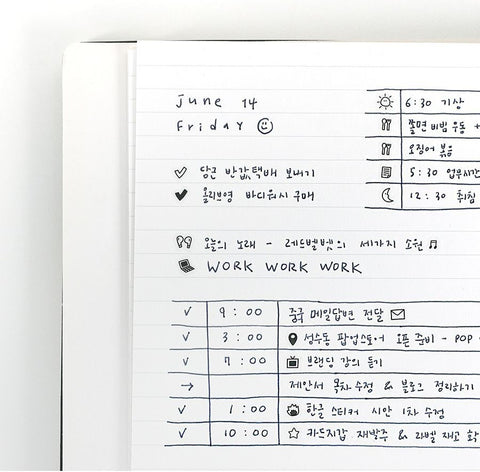 June 14
Friday
6:30 기상
쫄면 비빔 우동 +
오징어 볶음
5:30 업무시간
12:30 취침
당근 반값택배 보내기
올리브영 바디워시 구매
오늘의 노래 - 레드벨벳의 세가지 소원
WORK WORK WORK
✓ 9:00 중국 메일답변 전달
✓ 3:00 성수동 팝업스토어 오픈 준비 - POP
✓ 7:00 브랜딩 강의 듣기
→ 제안서 목차 수정 & 블로그 정리하기
✓ 1:00 한글 스티커 시안 1차 수정
✓ 10:00 카드지갑 재발주 & 라벨 재고 확